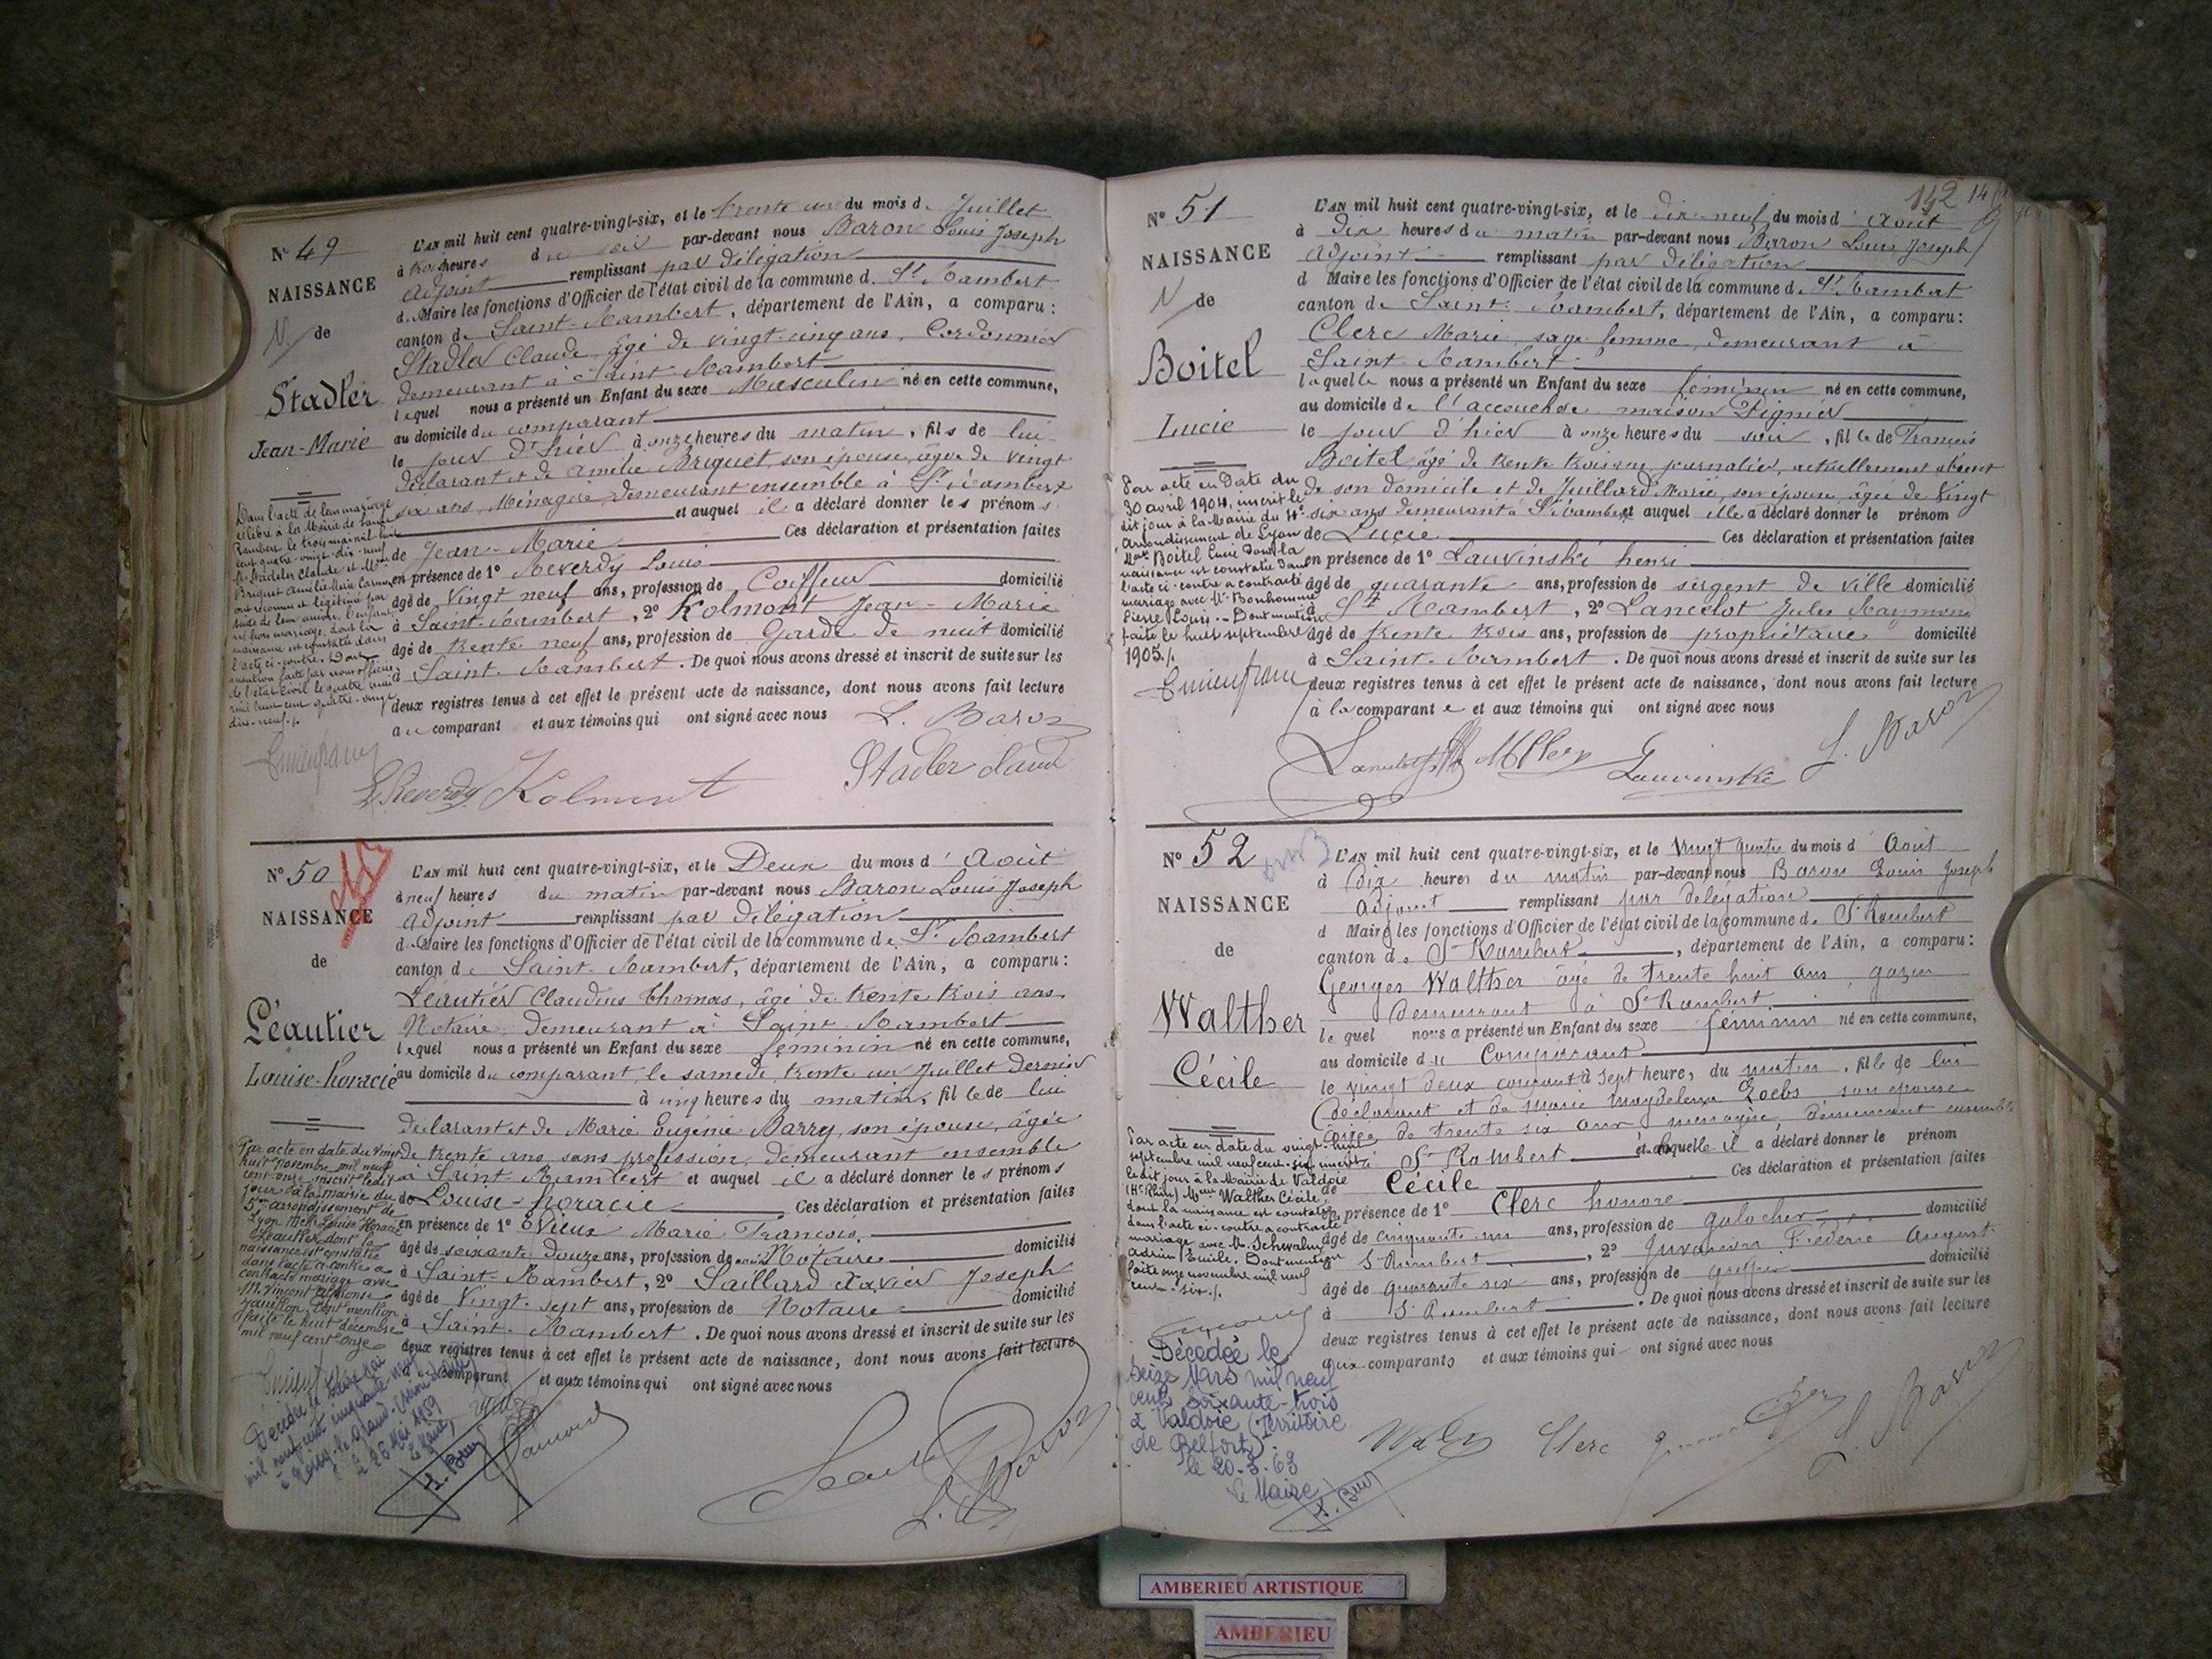 N° 49
NAISSANCE
N. de
Stadler
Jean-Marie
L'AN mil huit cent quatre-vingt-six, et le trente un du mois d. Juillet
à trois heures du soir par-devant nous Baron Louis Joseph
adjoint remplissant par délégation
d. Maire les fonctions d'Officier de l'état civil de la commune d. St Rambert
canton de Saint-Rambert, département de l'Ain, a comparu:
Stadler Claude, âgé de vingt-cinq ans, Cordonnier
demeurant à Saint-Rambert
lequel nous a présenté un Enfant du sexe Masculin né en cette commune,
au domicile du comparant
le jour d'hier à onze heures du matin, fils de lui
déclarant et de Amélie Briquet, son épouse, âgée de vingt
six ans, Ménagère, demeurant ensemble à St Rambert
et auquel il a déclaré donner les prénoms
de Jean-Marie Ces déclaration et présentation faites
en présence de 1° Reverdy Louis
âgé de vingt neuf ans, profession de Coiffeur domicilié
à Saint-Rambert, 2° Kolmont Jean-Marie
âgé de trente neuf ans, profession de Garde de nuit domicilié
à Saint-Rambert. De quoi nous avons dressé et inscrit de suite sur les
deux registres tenus à cet effet le présent acte de naissance, dont nous avons fait lecture
au comparant et aux témoins qui ont signé avec nous L. Baron
Dans l'acte de leur mariage
célébré à la Mairie de Saint
Rambert le trois mai mil huit
cent quatre-vingt-dix-neuf
Mr Stadeler Claude et Mme
Briquet Amélie Marie
ont reconnu et légitimé par
suite de leur union, l'enfant
né hors mariage, dont la
naissance est constatée dans
l'acte ci-contre. Dont
mention faite par nous officier
de l'état civil le quatre mai
mil huit cent quatre-vingt
dix-neuf./.
L. Reverdy Kolmont Stadler Claude
N° 50
NAISSANCE
de
Léautier
Louise-horacie
L'AN mil huit cent quatre-vingt-six, et le Deux du mois d'Août
à neuf heures du matin par-devant nous Baron Louis Joseph
adjoint remplissant par délégation
d. Maire les fonctions d'Officier de l'état civil de la commune de St Rambert
canton de Saint-Rambert, département de l'Ain, a comparu:
Léautier Claudius Thomas, âgé de trente trois ans
Notaire, demeurant à Saint-Rambert
lequel nous a présenté un Enfant du sexe feminin né en cette commune,
au domicile du comparant, le samedi trente un juillet dernier
à cinq heures du matin, fille de lui
déclarant et de Marie Eugénie Barry, son épouse, âgée
de trente ans, sans profession, demeurant ensemble
à Saint-Rambert et auquel il a déclaré donner les prénoms
de Louise-horacie Ces déclaration et présentation faites
en présence de 1° Vieux Marie François,
âgé de soixante douze ans, profession de Notaire domicilié
à Saint-Rambert, 2° Saillard Xavier Joseph
âgé de vingt-sept ans, profession de Notaire domicilié
à Saint-Rambert. De quoi nous avons dressé et inscrit de suite sur les
deux registres tenus à cet effet le présent acte de naissance, dont nous avons fait lecture
au comparant et aux témoins qui ont signé avec nous
Par acte en date du vingt
huit novembre mil neuf
cent onze inscrit ledit
jour à la mairie du
5me arrondissement de
Lyon Melle Louise Horacie
Léautier dont la
naissance est constatée
dans l'acte ci-contre a
contracté mariage avec
M. Vincent Alphonse
Dont mention
faite le huit décembre
mil neuf cent onze
mil neuf cent cinquante neuf
le 26 Mai 1959
Le Maire,
L. Baron
142
N° 51
NAISSANCE
N de
Boitel
Lucie
L'AN mil huit cent quatre-vingt-six, et le dix-neuf du mois d'Août
à Dix heures du matin par-devant nous Baron Louis Joseph
adjoint remplissant par délégation
d Maire les fonctions d'Officier de l'état civil de la commune d. St Rambert
canton de Saint-Rambert, département de l'Ain, a comparu:
Clerc Marie, sage femme, demeurant à
Saint-Rambert
laquelle nous a présenté un Enfant du sexe féminin né en cette commune,
au domicile de l'accouchée maison
le jour d'hier à onze heures du soir, fille de François
Boitel, âgé de trente trois ans, journalier, actuellement absent
de son domicile et de Juillard Marie, son épouse, âgée de vingt
six ans demeurant à St Rambert et auquel elle a déclaré donner le prénom
de Lucie Ces déclaration et présentation faites
en présence de 1° Lauvinski henri
âgé de quarante ans, profession de sergent de ville domicilié
à St Rambert, 2° Lancelot Jules Raymond
âgé de trente trois ans, profession de propriétaire domicilié
à Saint-Rambert. De quoi nous avons dressé et inscrit de suite sur les
deux registres tenus à cet effet le présent acte de naissance, dont nous avons fait lecture
à la comparante et aux témoins qui ont signé avec nous
Par acte en date du
30 avril 1904, inscrit le
dit jour à la Mairie du
arrondissement de Lyon
Mme Boitel Lucie dont la
naissance est constatée dans
l'acte ci-contre a contracté
mariage avec Mr Bonhomme
Pierre Louis. Dont mention
faite le huit septembre
1905./.
Lauvinski L. Baron
N° 52
NAISSANCE
de
Walther
Cécile
L'AN mil huit cent quatre-vingt-six, et le vingt quatre du mois d'Août
à dix heures du matin par-devant nous Baron Louis Joseph
adjoint remplissant par délégation
d Maire les fonctions d'Officier de l'état civil de la commune de St Rambert
canton de St Rambert, département de l'Ain, a comparu:
Georges Walther âgé de trente huit ans, gazeur
demeurant à St Rambert
lequel nous a présenté un Enfant du sexe féminin né en cette commune,
au domicile du Comparant
le vingt deux courant à sept heures du matin, fille de lui
déclarant et de Marie Magdeleine Loebs son épouse
âgée de trente six ans ménagère, demeurant ensemble
à St Rambert et à laquelle il a déclaré donner le prénom
de Cécile Ces déclaration et présentation faites
en présence de 1° Clerc honoré
âgé de cinquante un ans, profession de galocher domicilié
à St Rambert, 2° Frédéric August
âgé de quarante six ans, profession de greffier domicilié
à St Rambert. De quoi nous avons dressé et inscrit de suite sur les
deux registres tenus à cet effet le présent acte de naissance, dont nous avons fait lecture
aux comparants et aux témoins qui ont signé avec nous
Par acte en date du vingt-huit
septembre mil neuf cent-six inscrit
ledit jour à la Mairie de Valdoie
(Ht Rhin) Melle Walther Cécile
dont la naissance est constatée
dans l'acte ci-contre a contracté
mariage avec M. Schevalin
Adrien Emile. Dont mention
faite onze novembre mil neuf
cent-six./.
Décédée le
seize Mars mil neuf
cent soixante-trois
à Valdoie (Territoire
de Belfort).
le 20-3-63
Le Maire
Clerc L. Baron
AMBERIEU ARTISTIQUE
AMBERIEU